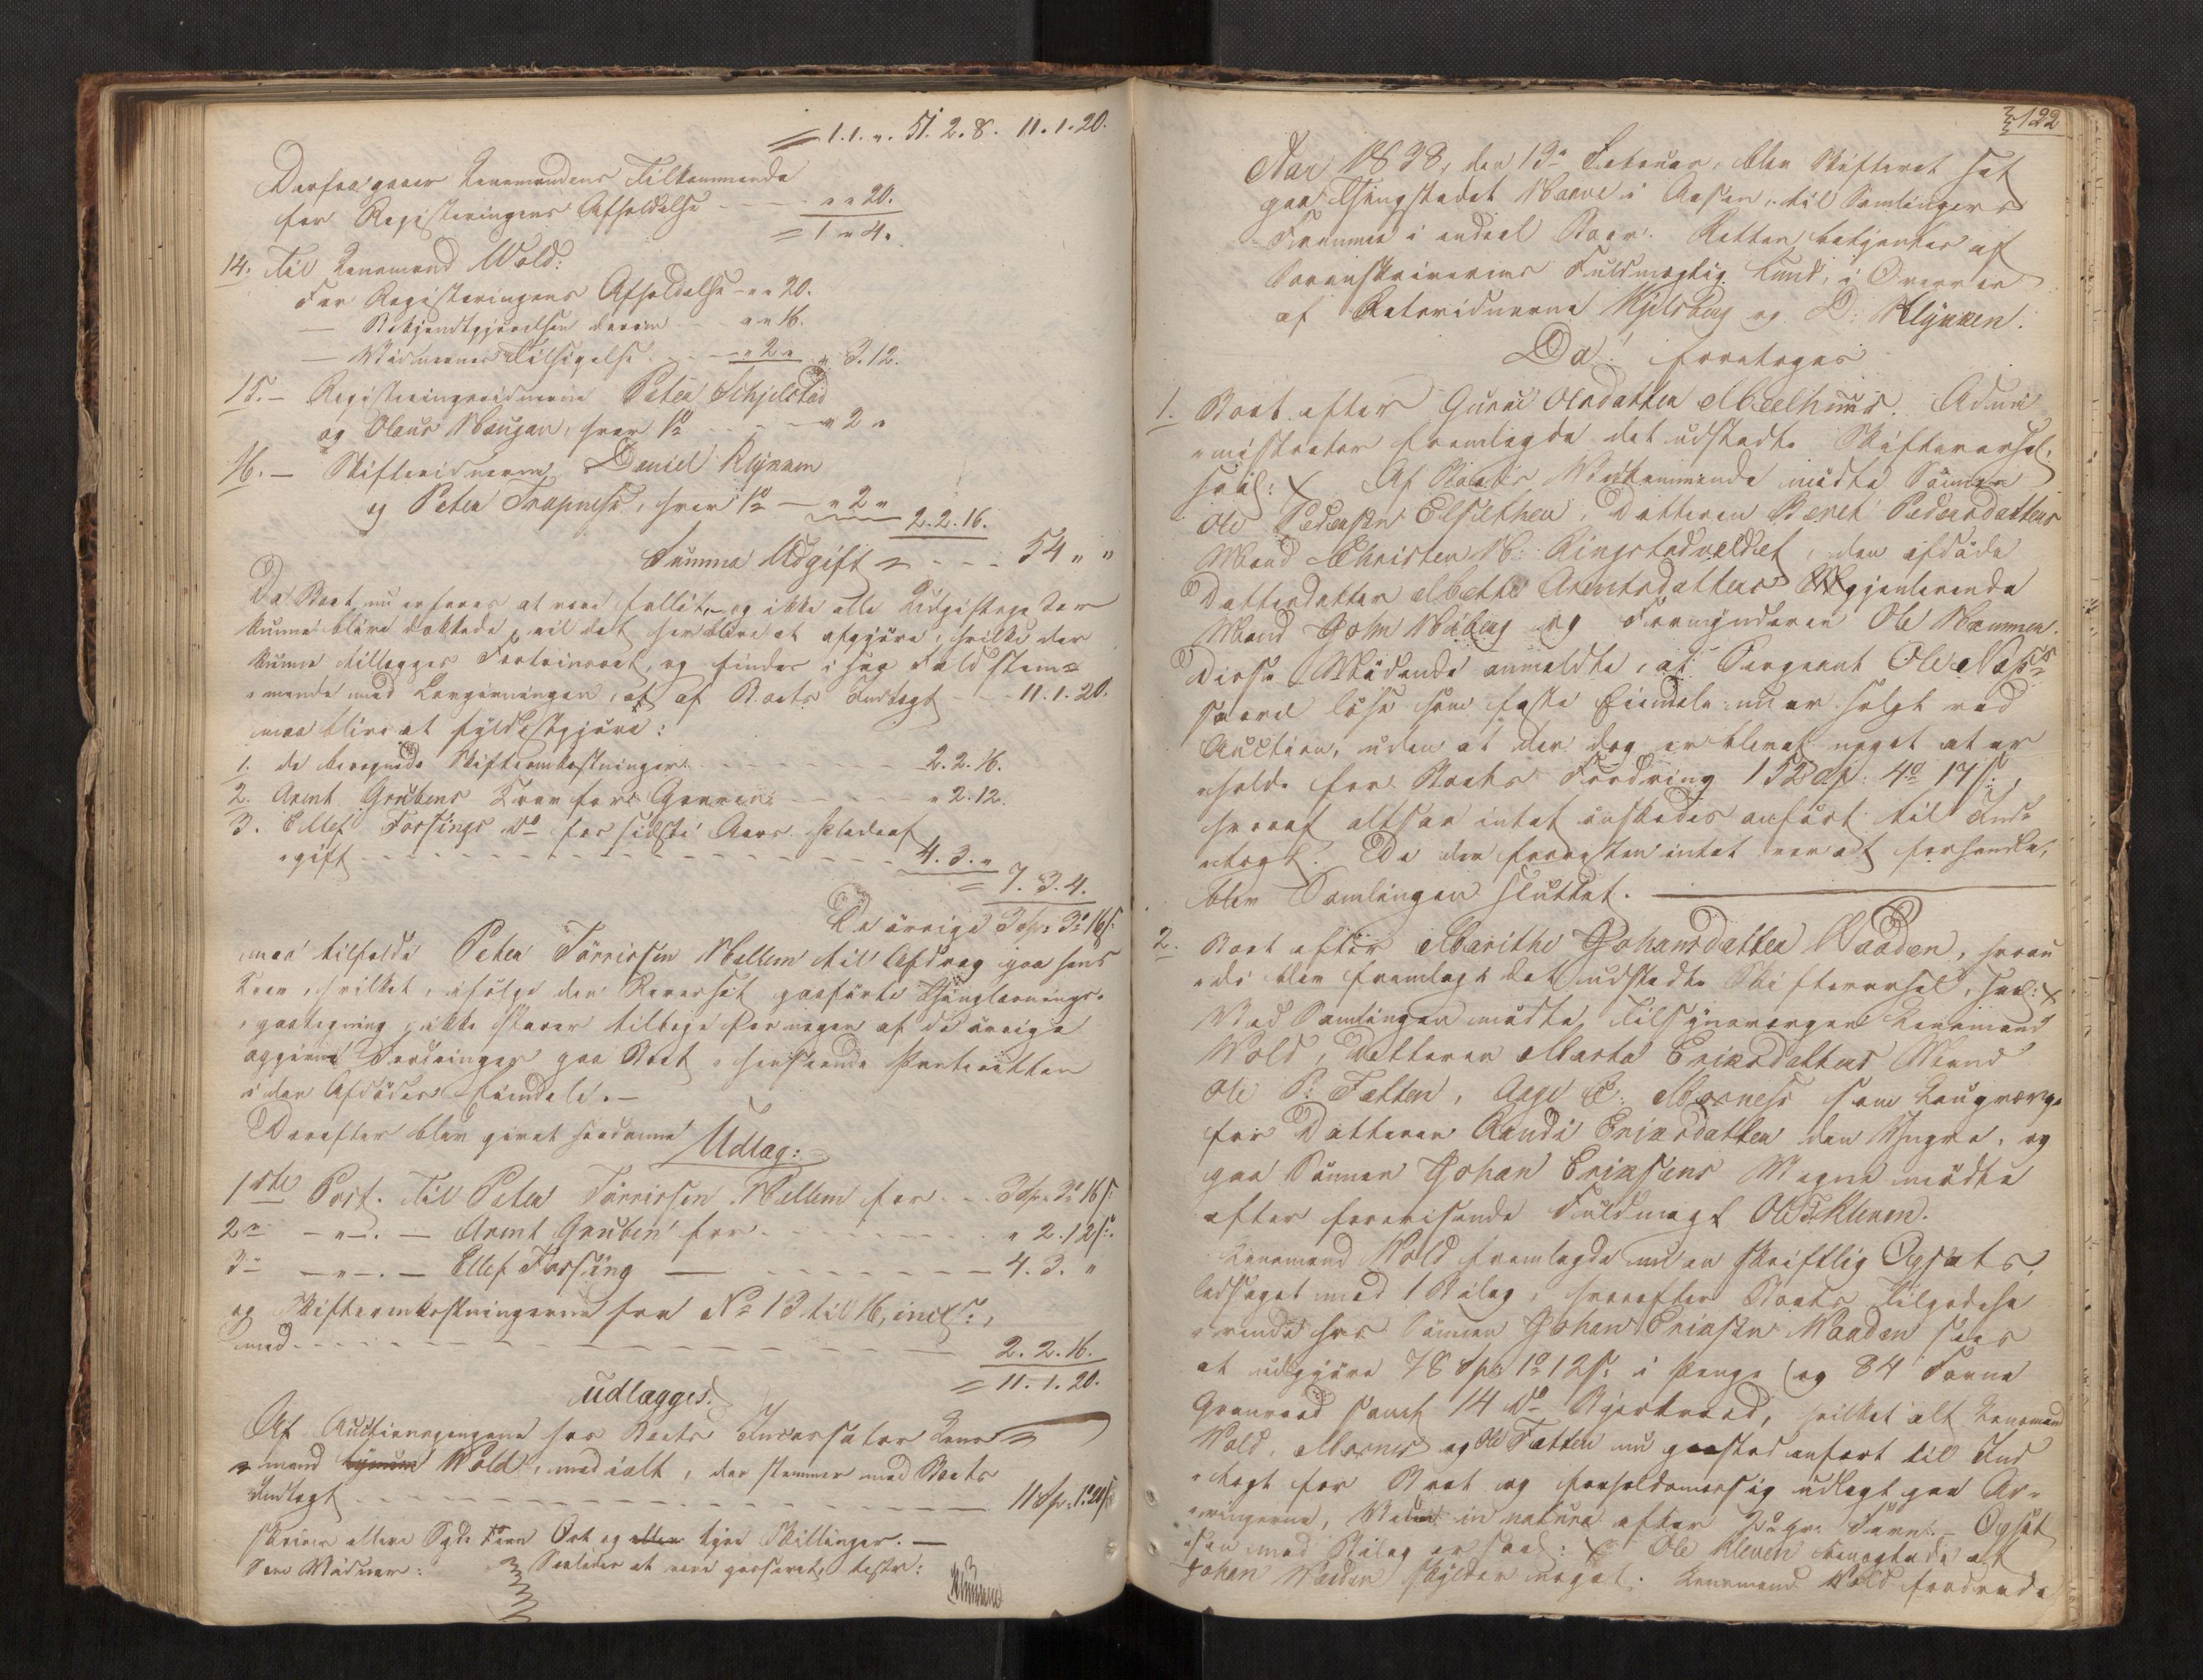 = 1.1. „. 51. 2. 8. 11. 1. 20.
Derfra gaaer Lensmandens Tilkommende
for Registeringens Afholdelse - - - „ „ 20.
= 1 „ 4.
14. Til Lensmand Wold:
For Registeringens Afholdelse - „ „ 20.
— Bekjendtgjørelsen derom - - „ „ 16.
— Vidnernes Tilsigelse - - - „ 2 „ „ 3. 12.
15. — Registeringsvidnerne Peter Schjelstad
og Olaus Haugan, hver 1 o - - - - „ 2 „
16. — Skiftevidnerne Daniel Klykken
og Peter Trapnæss, hver 1 o — „ 2 „
2. 2. 16.
Summa Udgift - - - 54 „ „
Da Boet nu erfares at være fallit, og ikke alle Udgiftsposter
kunne blive dækkede, vil det her blive at afgjøre, hvilke der
kunne tillægges Fortrinsret, og findes i saa Fald stem-
mende med Lovgivningen, at af Boets Indtægt - - 11. 1. 20.
maa blive at fyldestgjøre:
1. de beregnede Skifteomkostninger - - - - - - 2. 2. 16.
2. Arent Grubens Krav for - - - - - „ 2. 12.
3. Ellef Forsings do for sidste Aars
gift - - - - - - - - - - - - - - 4. 3. „
= 7. 3. 4.
De øvrige 3 Spd 3 o 16 s
maa tilfalde Peter Tørrissen Mellem til Afdrag paa hans
Krav, hvilket, ifølge den Beviset paaførte Thinglæsnings-
paategning, ikke staaer tilbage for nogen af de øvrige
opgivne Fordringer paa Boet, henseende Panteretten
i den Afdødes Eiendele. —
Derefter blev givet saadanne Udlæg:
1ste Post. Til Peter Tørrissen Mellem for - - 3 Spd 3 o 16 s
2 — „ — . — Arent Gruben for - - - - - - - „ 2. 12 s.
3 — „ — . — Ellef Forsing — - - - - - - 4. 3. „
og Skifteomkostningerne fra No 13 til 16, incl:,
med - - - - - - - - - - - - - - 2. 2. 16.
= 11. 1. 20.
udlægges
Af Auctionspengene hos Boets Incassator Lens-
mand Wold, med ialt, der stemmer med Boets
Indtægt - - - - - - - - - - - - - 11 Sp. 1. 20 s
skriver elleve Spd. een Ort og tyve Skillinger. —
Som Vidner: Saaledes at være passeret, testr:
122
Aar 1838, den 13de Februar, blev Skifteret sat
paa Thingstedet Vorve i Aasen, til Samlingers
Fremme i endeel Boer. Retten betjentes af
Sorenskriverens Fuldmægtig Lund, i Overvær
af Retsvidnerne Kjelsberg og D: Klykken.
Da foretoges
1. Boet efter Guruc Olsdatter Meelhuus. Admi-
nistrator fremlagde det udstedte Skiftevarsel,
saal: X Af Boets Vedkommende mødte Sønnen
Ole Pedersen Elslethen, Datteren Beret Pedersdatters
Mand Christen B: Ringstadvældet, den afdøde
Datterdatter Mette Arentsdatters gjenlevende
Mand John Viberg og Formynderen Ole Vammen.
Disse Mødende anmeldte, at Sergeant Ole Næss
saavel løse som faste Eiendele nu er solgt ved
Auction, uden at der dog er blevet noget at er-
holde for Boets Fordring 152 Sp: 4 o 17 s:,
hvoraf altsaa intet ønskedes anført til Ind-
tægt. Da der forresten intet var at forhandle,
blev Samlingen sluttet. ———
2. Boet efter Marithe Johansdatter Vaaden, hvori
di blev fremlagt det udstedte Skiftevarsel, saal: X
Ved Samlingen mødte Tilsynsværgen Lensmand
Wold, Datteren Marta Eriksdatters Mand
Ole P: Fætten, Aage E: Mosness som Laugværge
for Datteren Randi Eriksdatter den Yngre, og
paa Sønnen Johan Eriksens Vegne mødte
efter forevisende Fuldmagt Ole Kleven.
Lensmand Wold fremlagde nu en skriftlig Opsats,
ledsaget med 1 Bilag, hvorefter Boets Tilgodeha-
vende hos Sønnen Johan Eriksen Vaaden sees
at udgjøre 78 Sp. 1 o 12 s: i Penge og 84 Favne
Granved samt 14 do Birkeved, hvilket alt Lensmand
Wold, Mosness og Ole Fætten nu paastod anført til Ind-
tægt for Boet og forholdsmæssig udlagt paa Ar-
vingerne, Veden in natura efter pr. Favn. — Opsat-
sen med Bilag er saal: X Ole Kleven benægtede at
Johan Vaaden skylder noget. Lensmand Wold fordrede